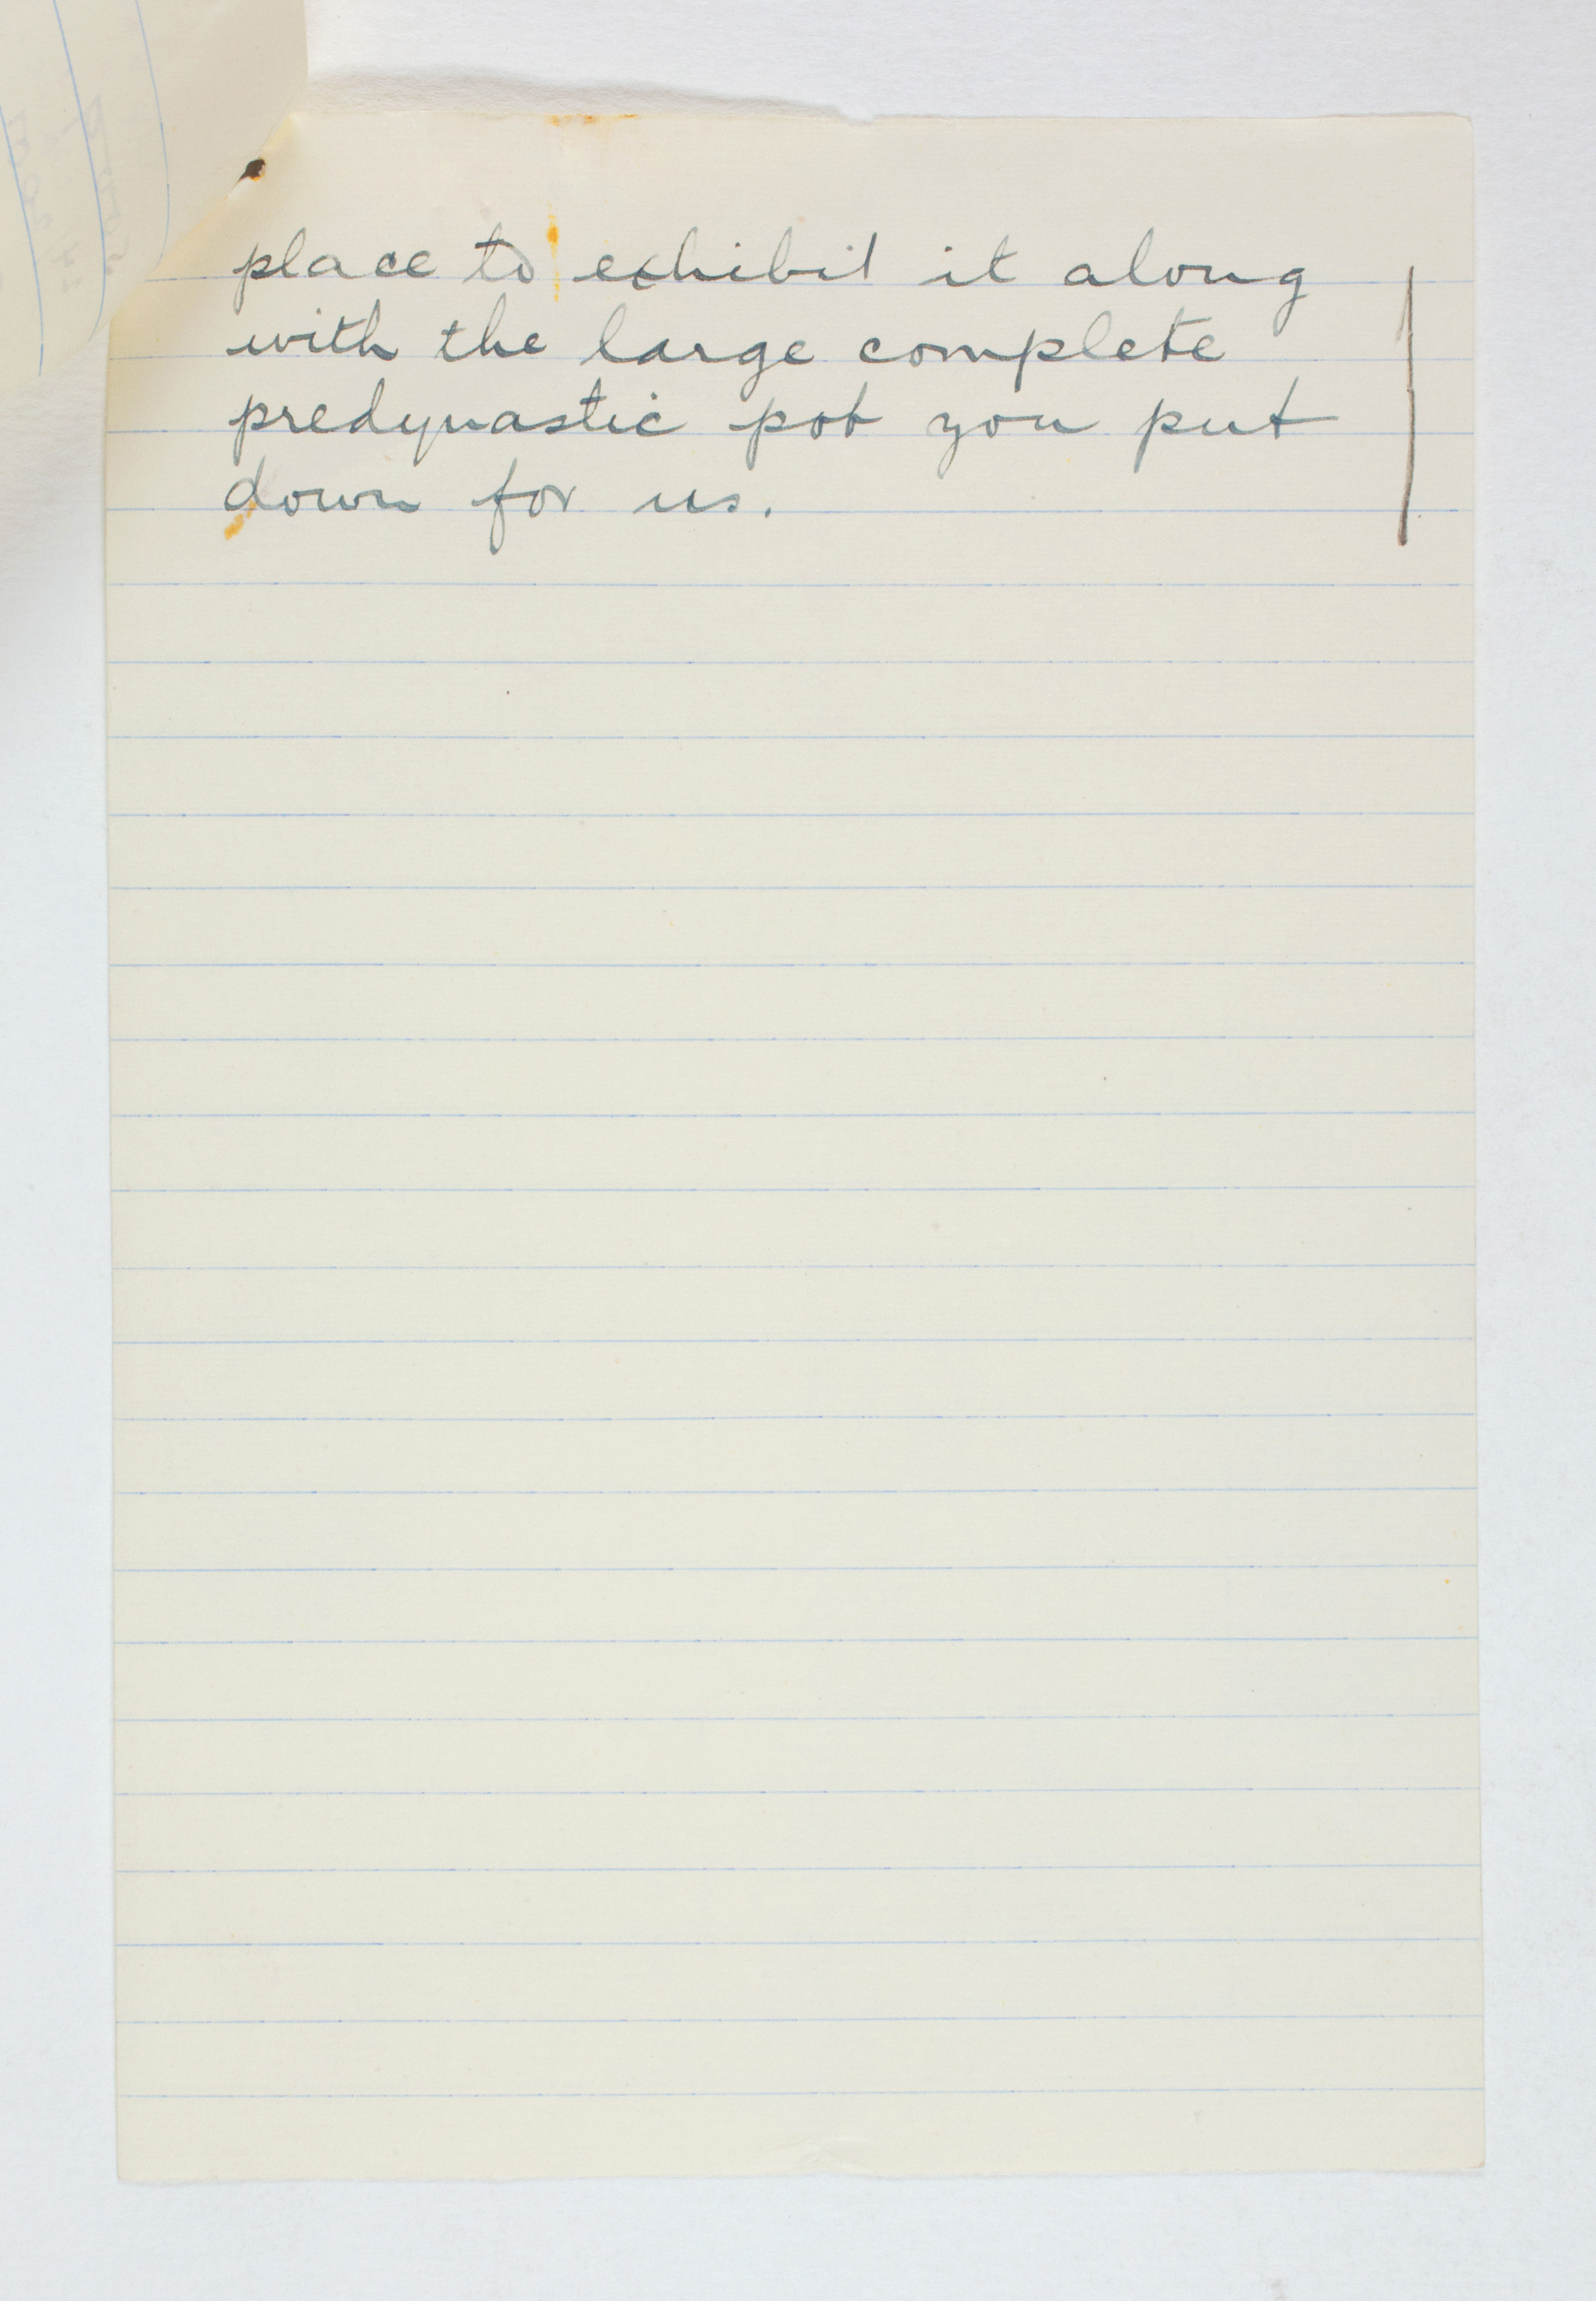 place to exhibit it along
with the large complete
predynastic pot you put
down for us.